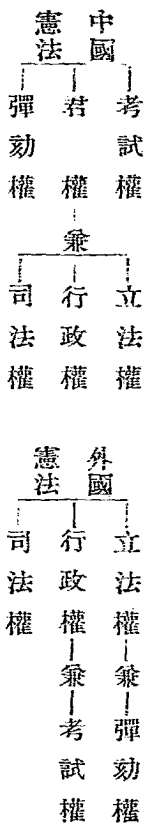 中國
憲法
考試權
君權
彈劾權
兼
立法權
行政權
司法權
外國
憲法
立法權兼彈劾權
行政權兼考試權
司法權